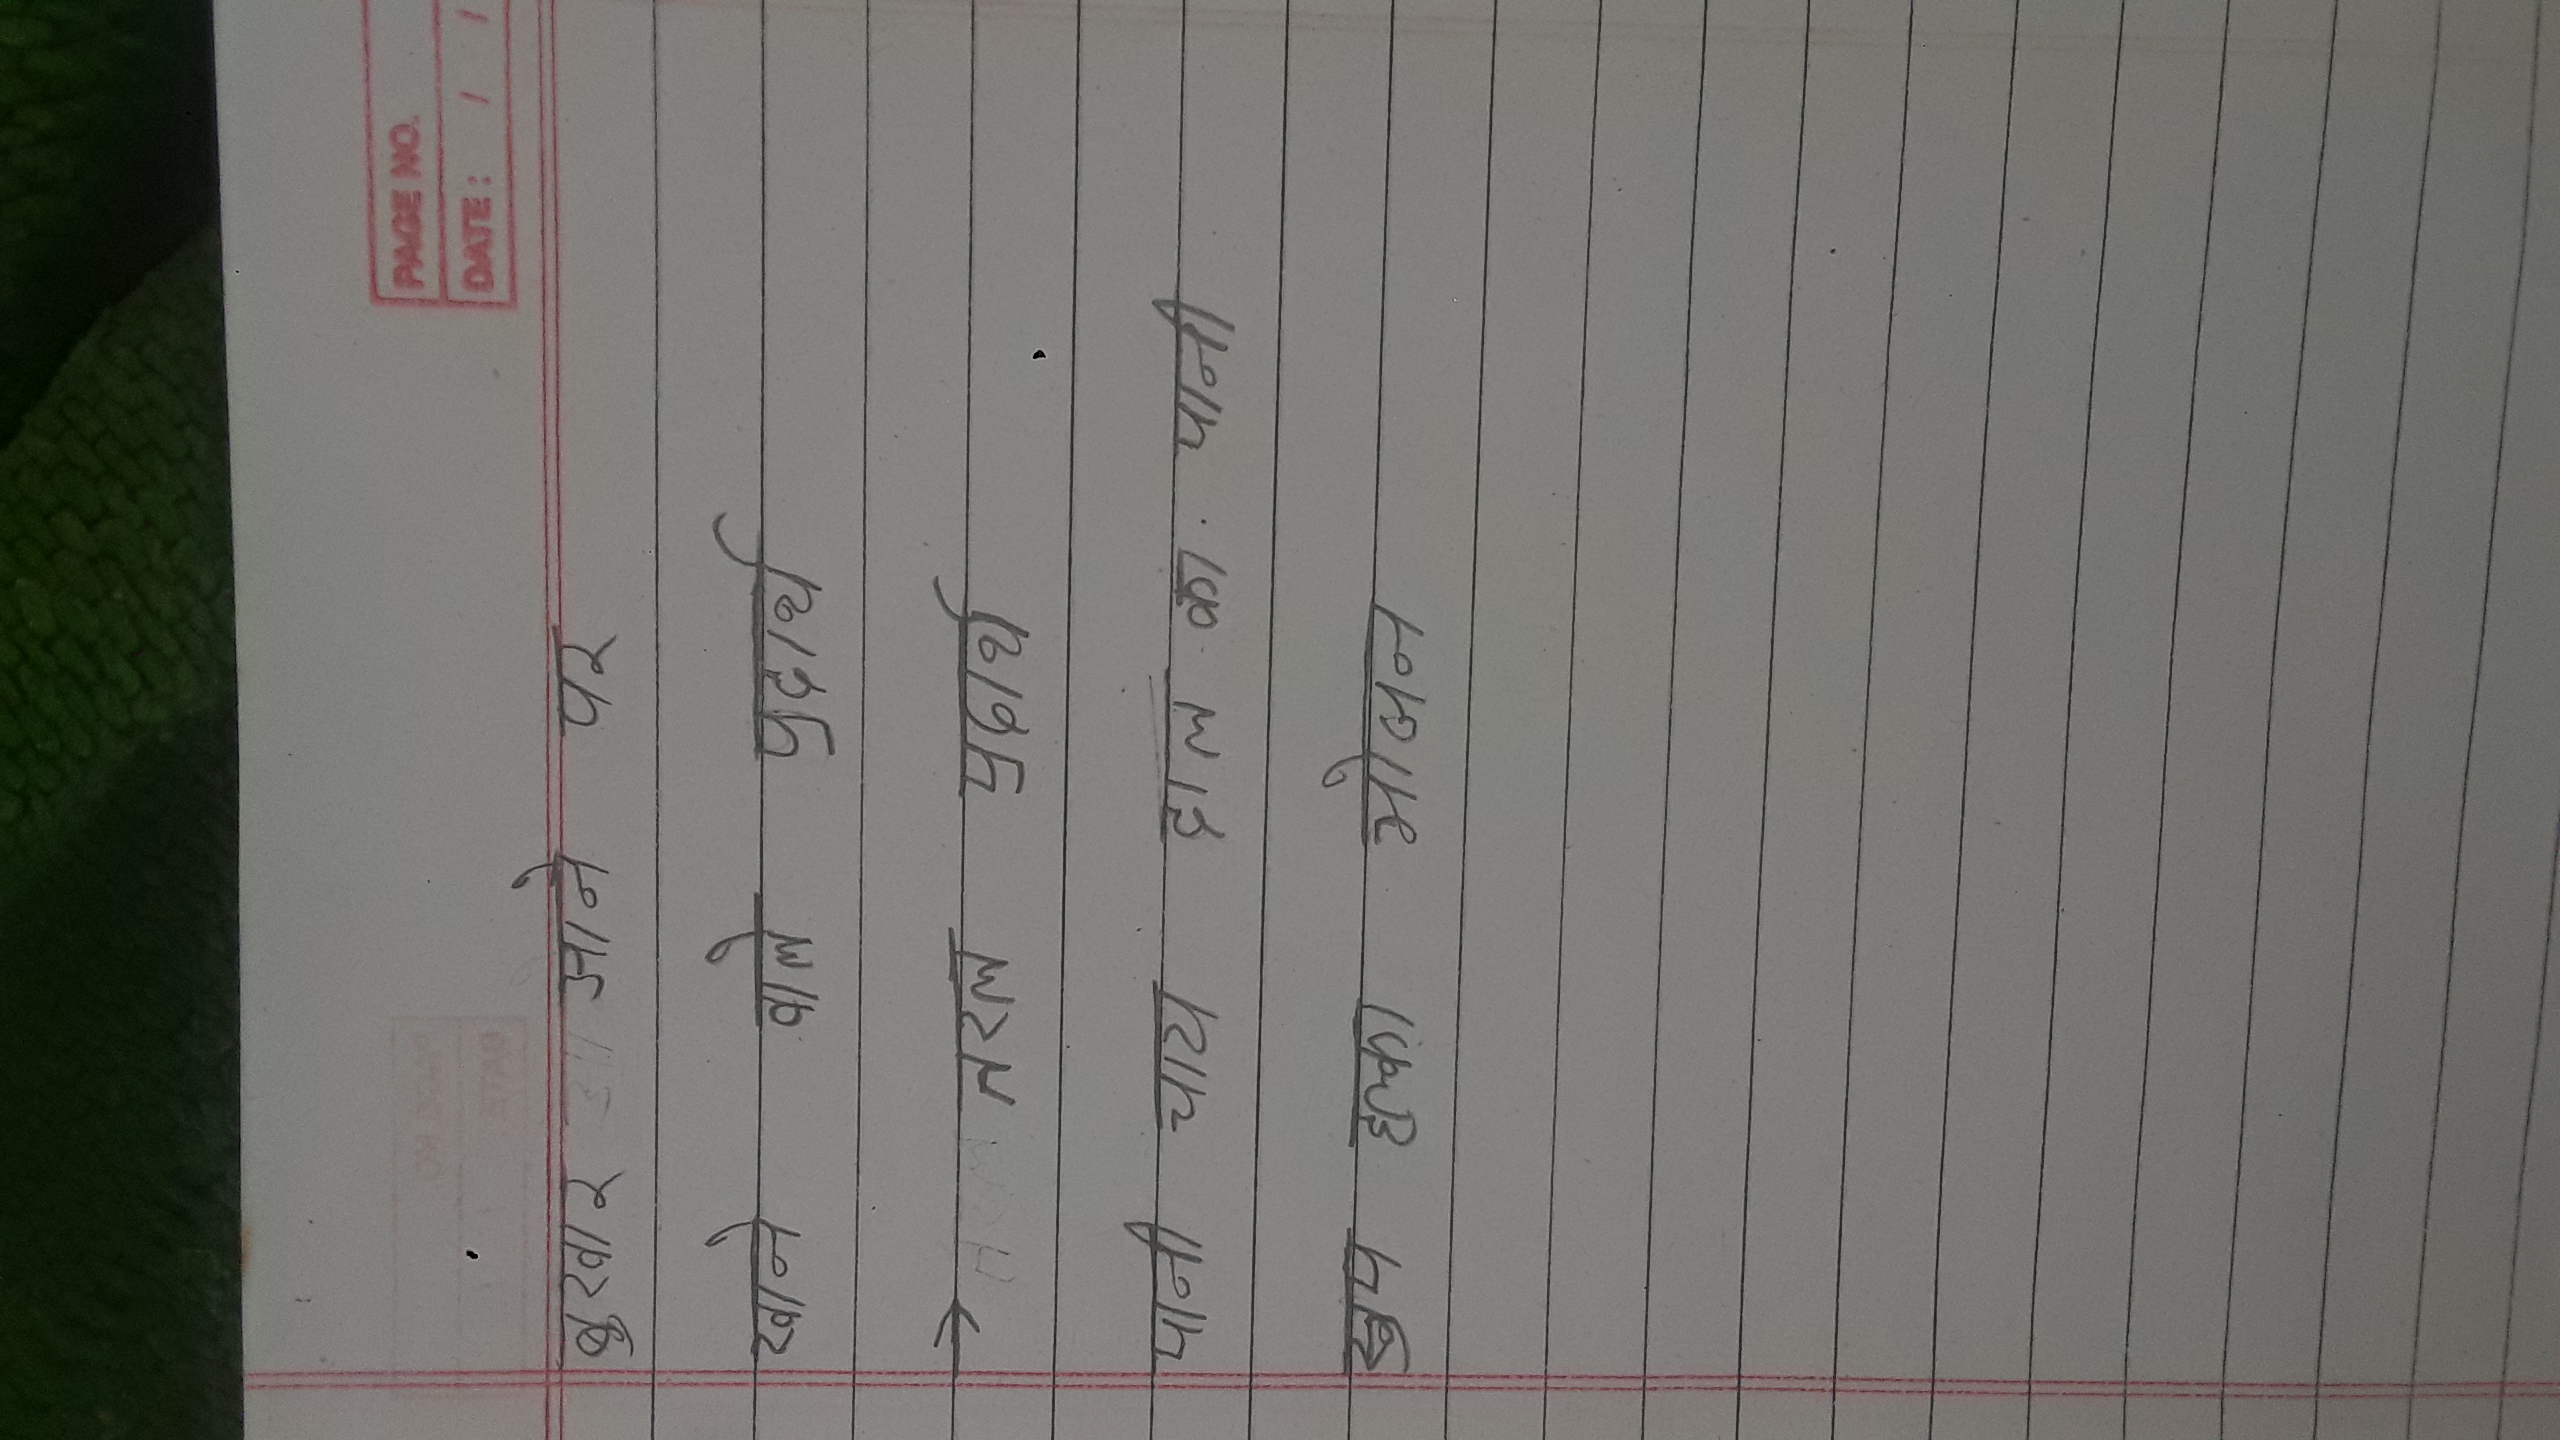 PAGE NO.
DATE: / /
बुखार आ जाने पर
खाने वाले पदार्थ
→ तरल पदार्थ
पानी चाय दाल का पानी
हल्का भोजन